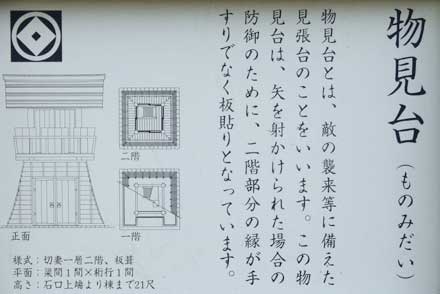 物見台（ものみだい）
物見台とは、敵の襲来等に備えた
見張台のことをいいます。この物
見台は、矢を射かけられた場合の
防御のために、二階部分の縁が手
すりでなく板貼りとなっています。
二階
正面
一階
様式：切妻一層二階、板葺
平面：梁間１間×桁行１間
高さ：石口上端より棟まで21尺